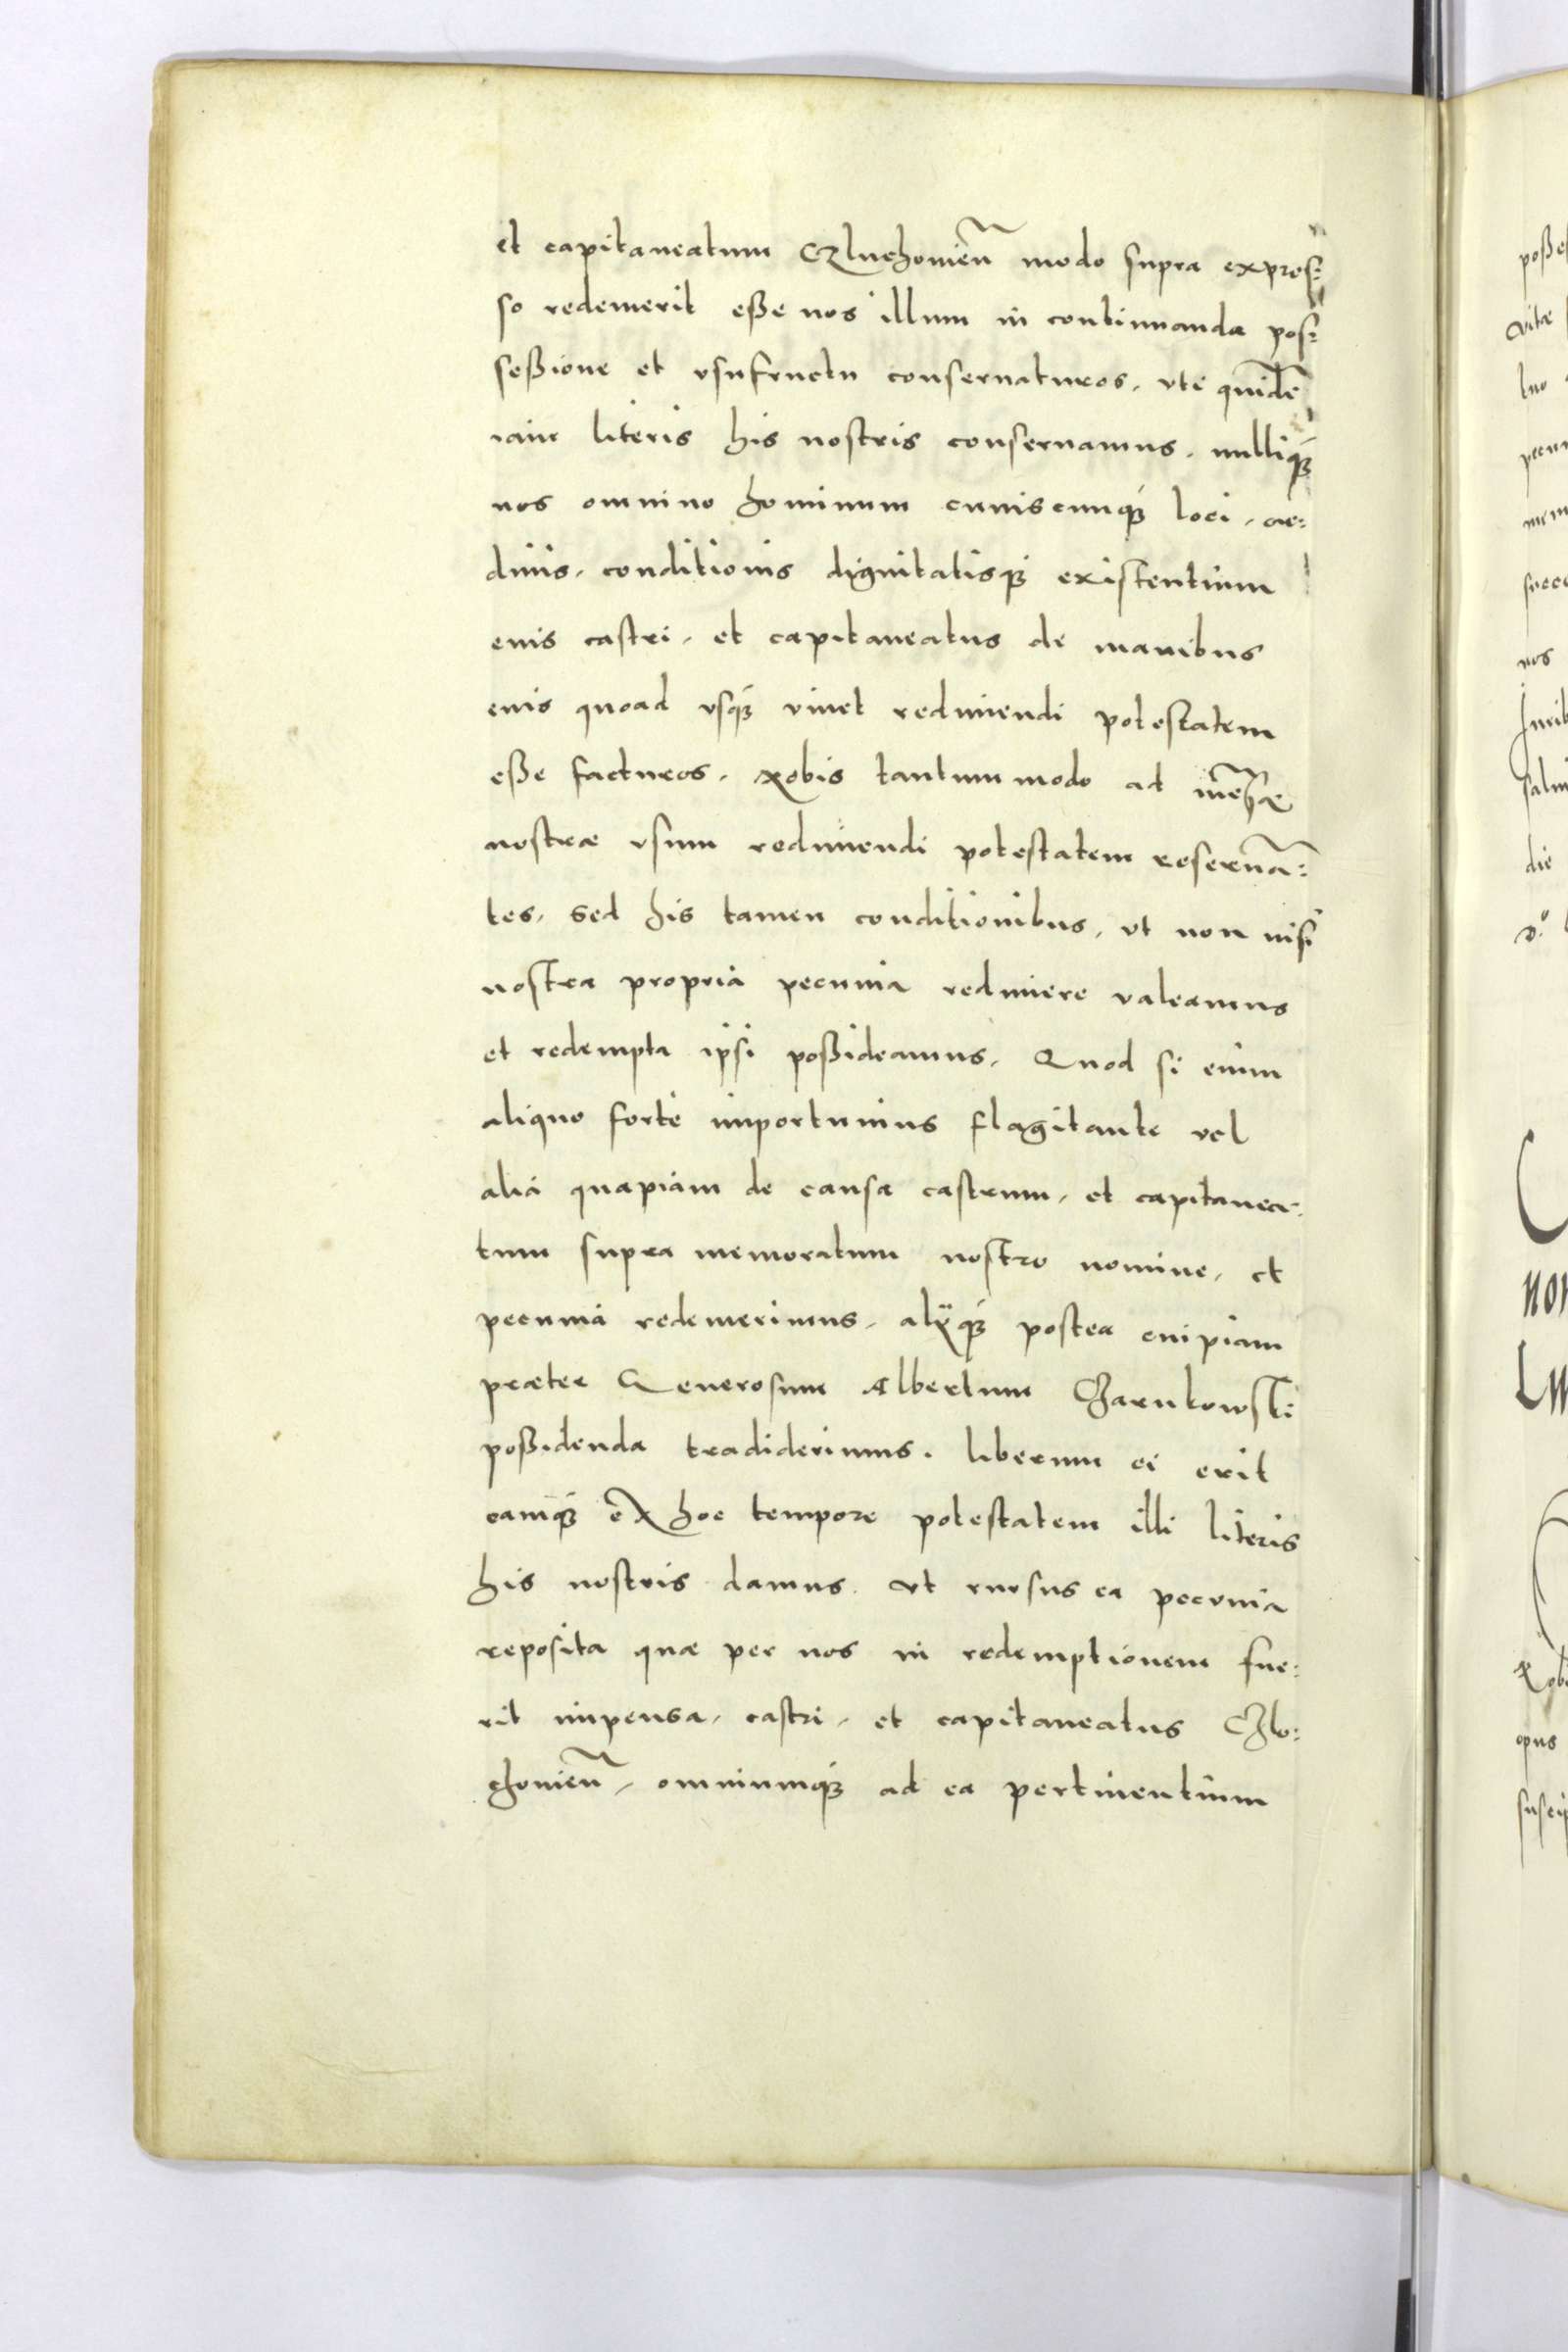 et capitaneatum Czluchouien̄ modo supra expres:
so redemerit eße nos illum in continuanda pos:
seßione et vsufructu conseruaturos, vti quidē
iam literis his nostris conseruamus, nulliq́ꝫ
nos omnino hominum cuiuscunq́ꝫ loci, or:
dinis, conditionis dignitatisq́ꝫ existentium
euis castri, et capitaneatus de manibus
euis quoad vsq́ꝫ viuet redimendi potestatem
eße facturos, Nobis tantummodo ad mēsæ
nostræ vsum redimendi potestatem reseruā:
tes, sed his tamen conditionibus, vt non nisi
nostra propria pecunia redimere valeamus
et redempta ipsi poßideamus, Quod si enim
aliquo forte importunius flagitante vel
alia quapiam de causa castrum, et capitanea:
tum supra memoratum nostro nomine, et
pecunia redemerimus, alÿq́ꝫ postea cuipiam
præter Generosum Albertum Czarnkowski
poßidenda tradiderimus, liberum ei erit
eamq́ꝫ ex hoc tempore potestatem illi literis
his nostris damus, vt rursus ea pecunia
reposita quæ per nos in redemptionem fue:
rit impensa, castri, et capitaneatus Czlo:
chouien̄, omniumq́ꝫ ad ea pertinentium
poße
vitæ
tuo
pecun
mem
succe
nos
Iurib
salui
die
non
Nobi
opus
suscip